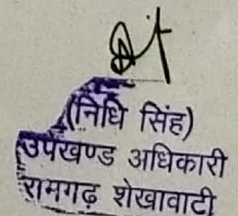 (निधि सिंह)
उपखण्ड अधिकारी
रामगढ़ शेखावाटी